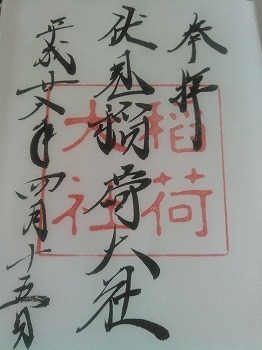 奉拝
伏見稲荷大社
平成廿八年四月十五日
稲荷
大社